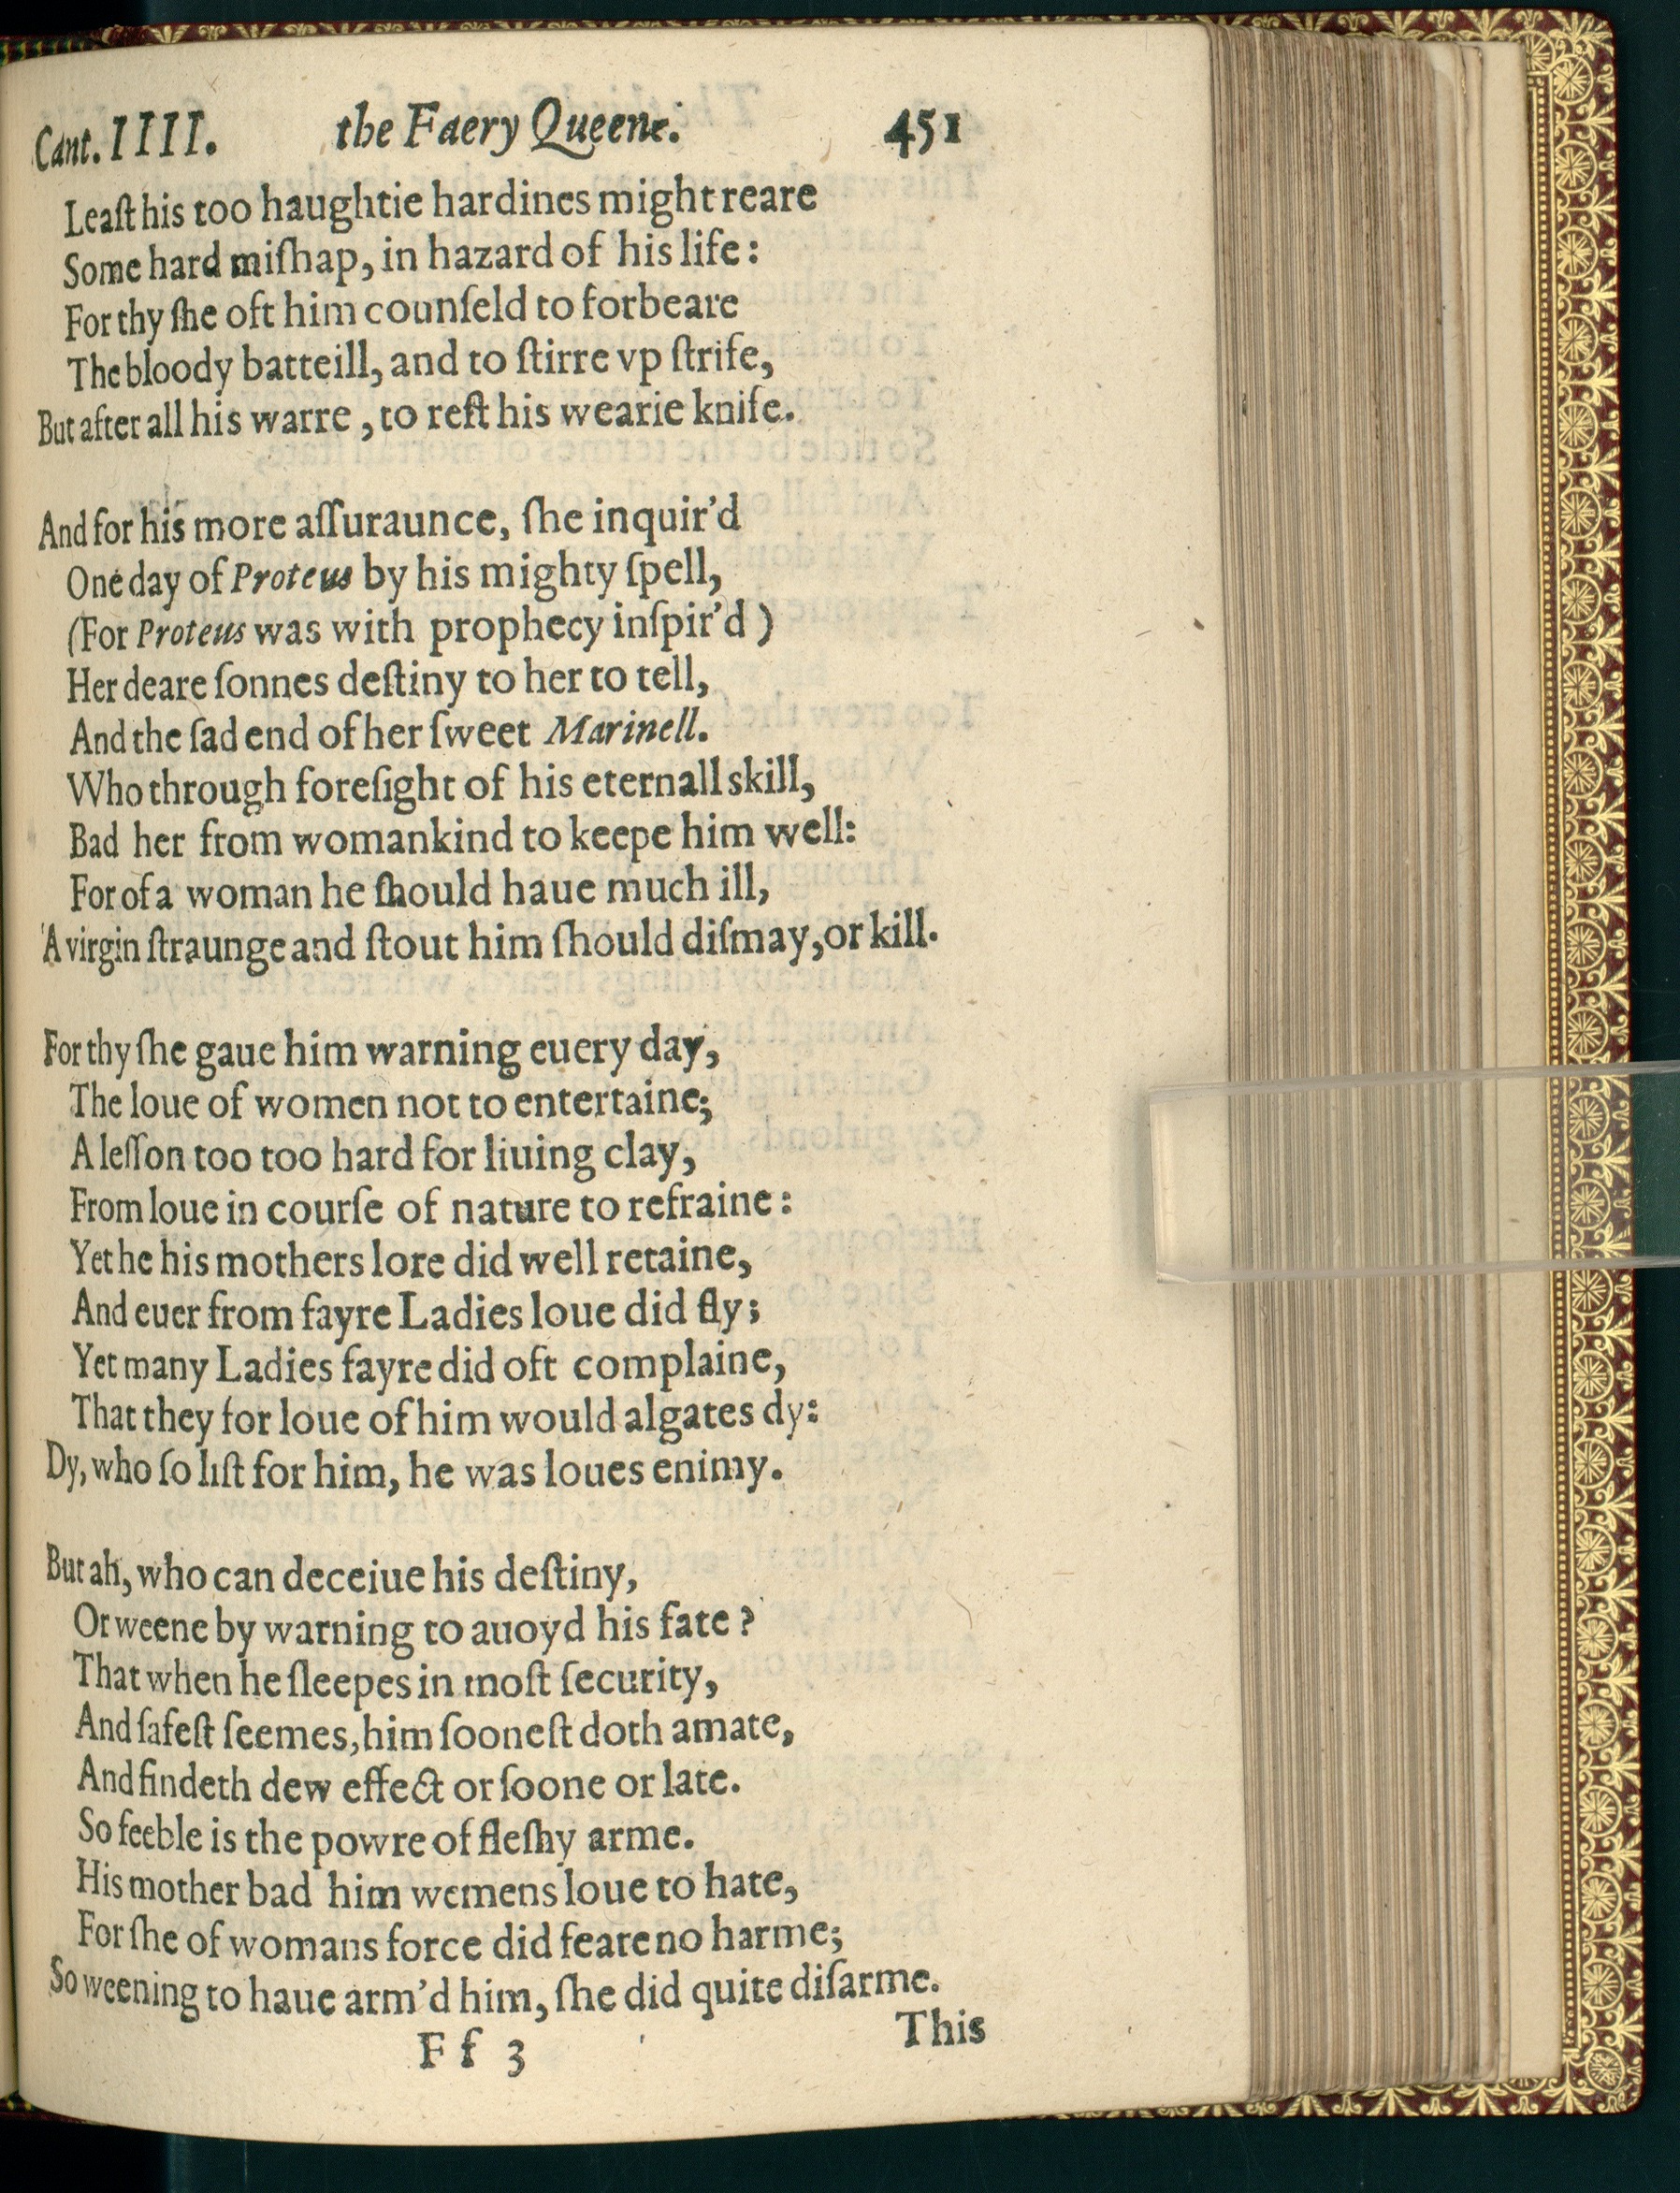 Cant. IIII. the Faery Queene. 451
Leaſt his too haughtie hardines might reare
Some hard miſhap, in hazard of his life:
For thy ſhe oft him counſeld to forbeare
The bloody batteill, and to ſtirre vp ſtrife,
But after all his warre, to reſt his wearie knife.
And for his more aſſuraunce, ſhe inquir'd
One day of Proteus by his mighty ſpell,
(For Proteus was with prophecy inſpir'd)
Her deare ſonnes deſtiny to her to tell,
And the ſad end of her ſweet Marinell.
Who through foreſight of his eternall skill,
Bad her from womankind to keepe him well:
For of a woman he ſhould haue much ill,
A virgin ſtraunge and ſtout him ſhould diſmay, or kill.
For thy ſhe gaue him warning euery day,
The loue of women not to entertaine;
A leſſon too too hard for liuing clay,
From loue in courſe of nature to refraine:
Yet he his mothers lore did well retaine,
And euer from fayre Ladies loue did fly;
Yet many Ladies fayre did oft complaine,
That they for loue of him would algates dy:
Dy, who ſo liſt for him, he was loues enimy.
But ah, who can deceiue his deſtiny,
Or weene by warning to auoyd his fate?
That when he ſleepes in moſt ſecurity,
And ſafeſt ſeemes, him ſooneſt doth amate,
And findeth dew effect or ſoone or late.
So feeble is the powre of fleſhy arme.
His mother bad him wemens loue to hate,
For ſhe of womans force did feare no harme;
So weening to haue arm'd him, ſhe did quite diſarme.
Ff 3 This